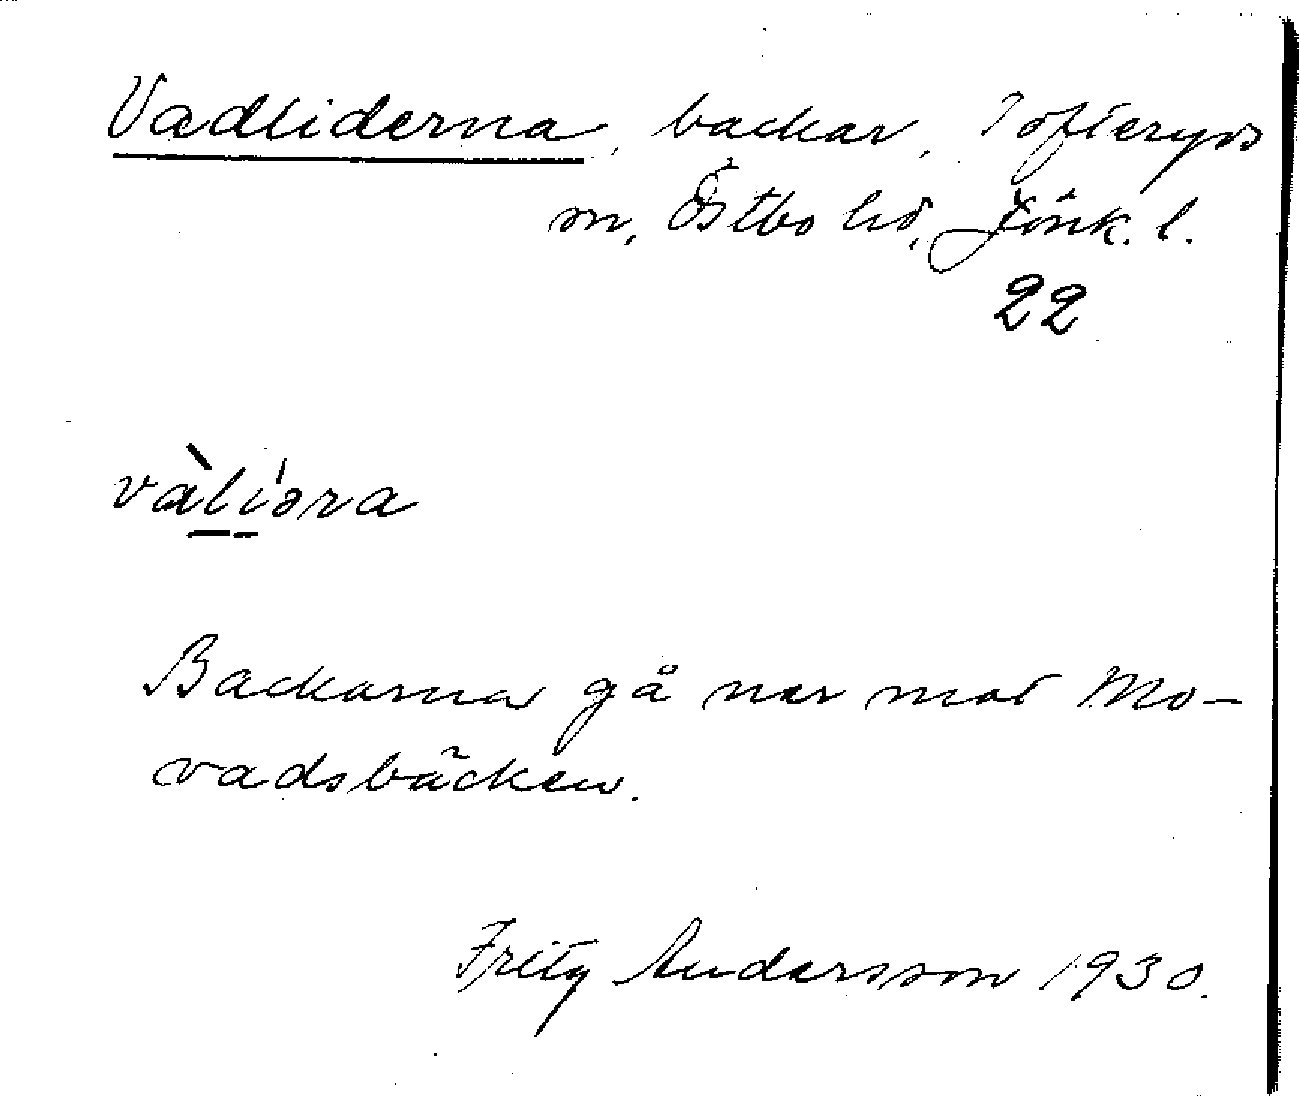 Vadliderna, backar, Tofteryds
sn, Östbo hd, Jönk. l.
22
vàlíəra
Backarna gå ner mot Mo-
vadsbäcken.
Fritz Andersson 1930.